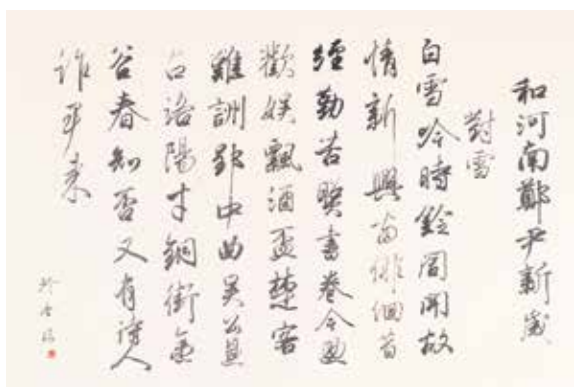 和河南鄭尹新歲
對雪
白雪吟時鈴閣開故
情新興兩徘徊昔
經勤苦照書卷今助
歡娱飄酒盃楚客
難詶郢中曲吴公兼
占洛陽才銅街金
谷春知否又有詩人
作尹来